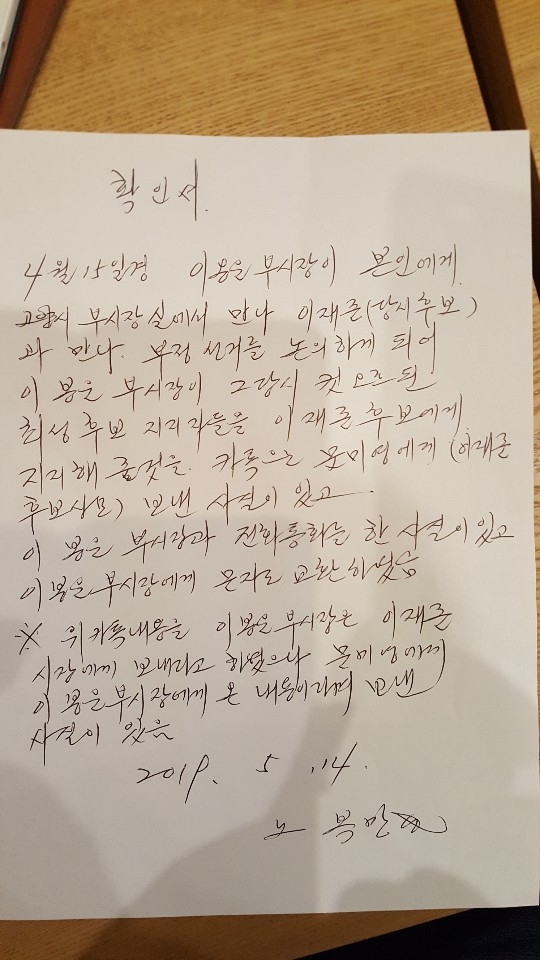 확인서.
4월 15일경 이봉운 부시장이 본인에게
고양시 부시장실에서 만나 이재준(당시후보)
과 만나. 부정선거를 논의하게 되어
이봉운 부시장이 그당시 컷오프된
최성후보 지지자들을 이재준후보에게
지지해 줄것을. 카톡으로 문미영에게 (이재준
후보사모) 보낸 사실이 있고.
이봉운 부시장과 전화통화를 한 사실이 있고
이봉운부시장에게 문자로 교환하였음
※ 위카톡내용을 이봉운부시장은 이재준
시장에게 보내라고 하였으나 문미영에게
이봉운부시장에게 온 내용이라며 보낸
사실이 있음
2019. 5. 14.
노